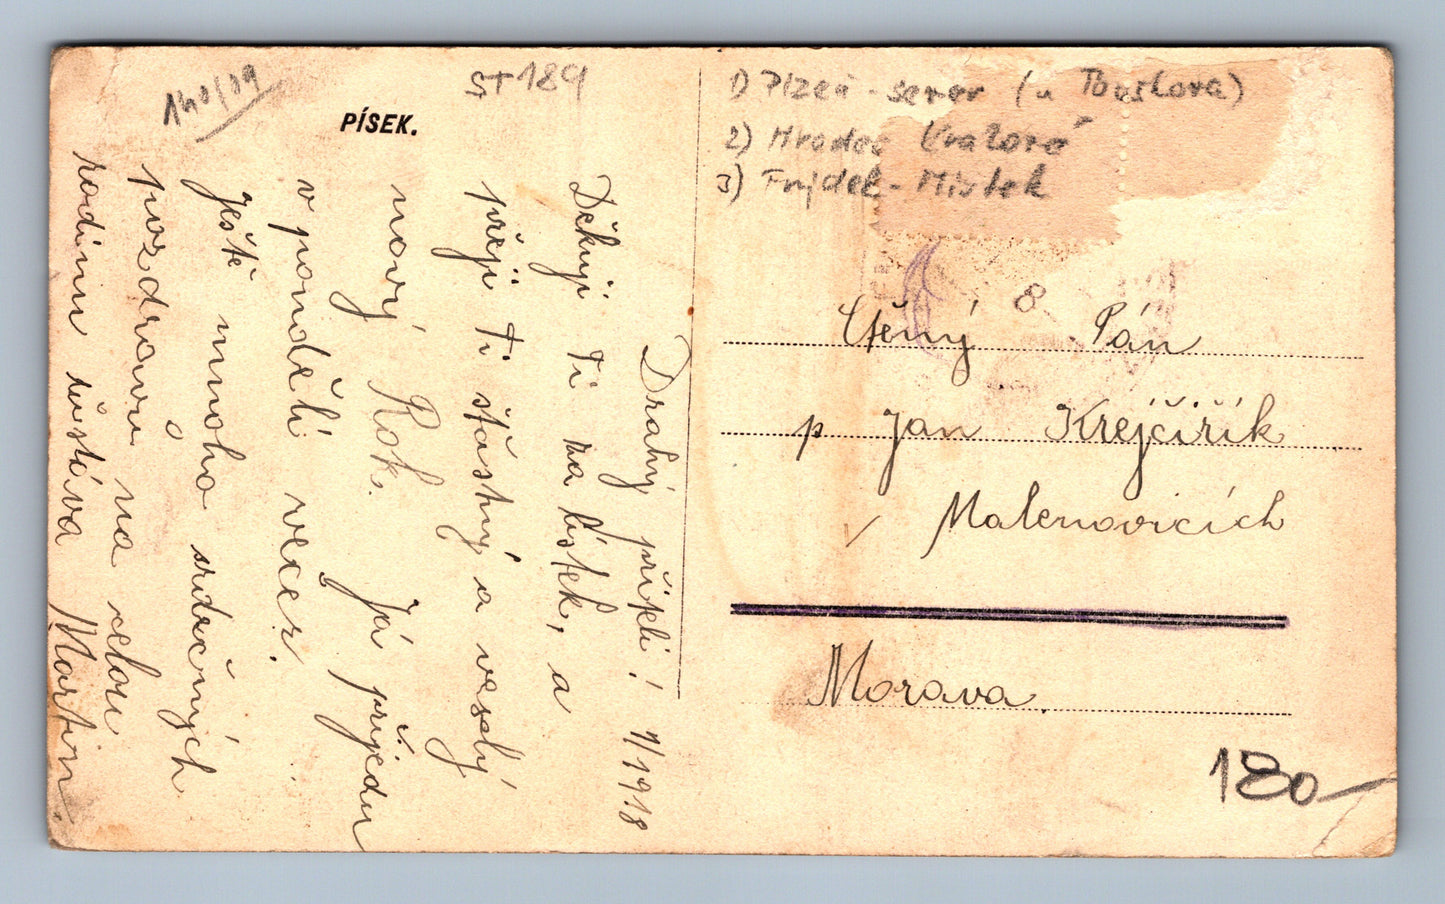 140/09
ST 189
PÍSEK.
1) Plzeň - sever (u Touškova)
2) Hradec Králové
3) Frýdek - Místek
Drahý příteli! 1/1918
Děkuji Ti za lístek, a
přeji Ti šťastný a veselý
nový Rok. Já přijedu
v pondělí večer.
Ještě mnoho srdečných
pozdravů na celou
rodinu zůstíva Martin.
Ctěný Pán
p Jan Krejčiřík
Malenovicích
Morava.
180-